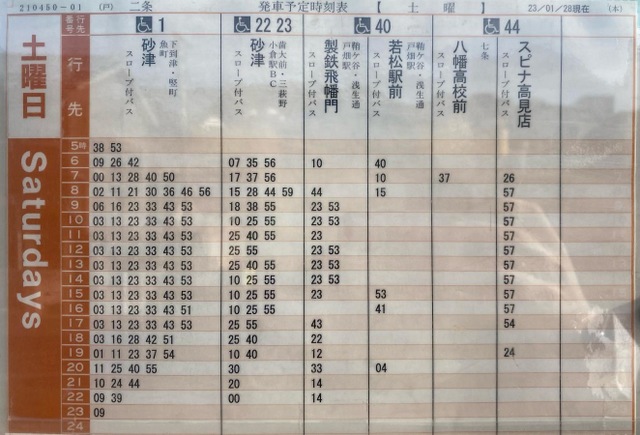 210450-01 (戸) 二条 発車予定時刻表 【 土 曜 】 23/01/28現在 (木)
番号 行先 1 22 23 40 44
土曜日
行先
砂津 下到津・竪町 魚町 スロープ付バス
砂津 歯大前・三萩野 小倉駅BC スロープ付バス
製鉄飛幡門 鞘ケ谷・浅生通 戸畑駅 スロープ付バス
若松駅前 鞘ケ谷・浅生通 戸畑駅 スロープ付バス
八幡高校前 七条
スピナ高見店 スロープ付バス
Saturdays
5時 38 53
6 09 26 42 07 35 56 10 40
7 00 13 28 40 50 17 37 56 10 37 26
8 02 11 21 30 36 46 56 15 28 44 59 44 15 57
9 06 16 23 33 43 53 18 38 55 23 53 57
10 03 13 23 33 43 53 10 25 55 23 53 57
11 03 13 23 33 43 53 25 40 55 23 57
12 03 13 23 33 43 53 25 55 23 53 57
13 03 13 23 33 43 53 25 40 55 23 53 57
14 03 13 23 33 43 53 10 25 55 23 53 57
15 03 13 23 33 43 53 10 25 55 23 53 57
16 03 13 23 33 43 51 10 25 55 41 57
17 03 13 23 33 43 53 25 55 43 54
18 03 16 28 42 51 25 40 22
19 01 11 23 37 54 10 40 12 24
20 11 25 40 55 30 33 04
21 10 24 44 20 14
22 09 39 00 14
23 09
24